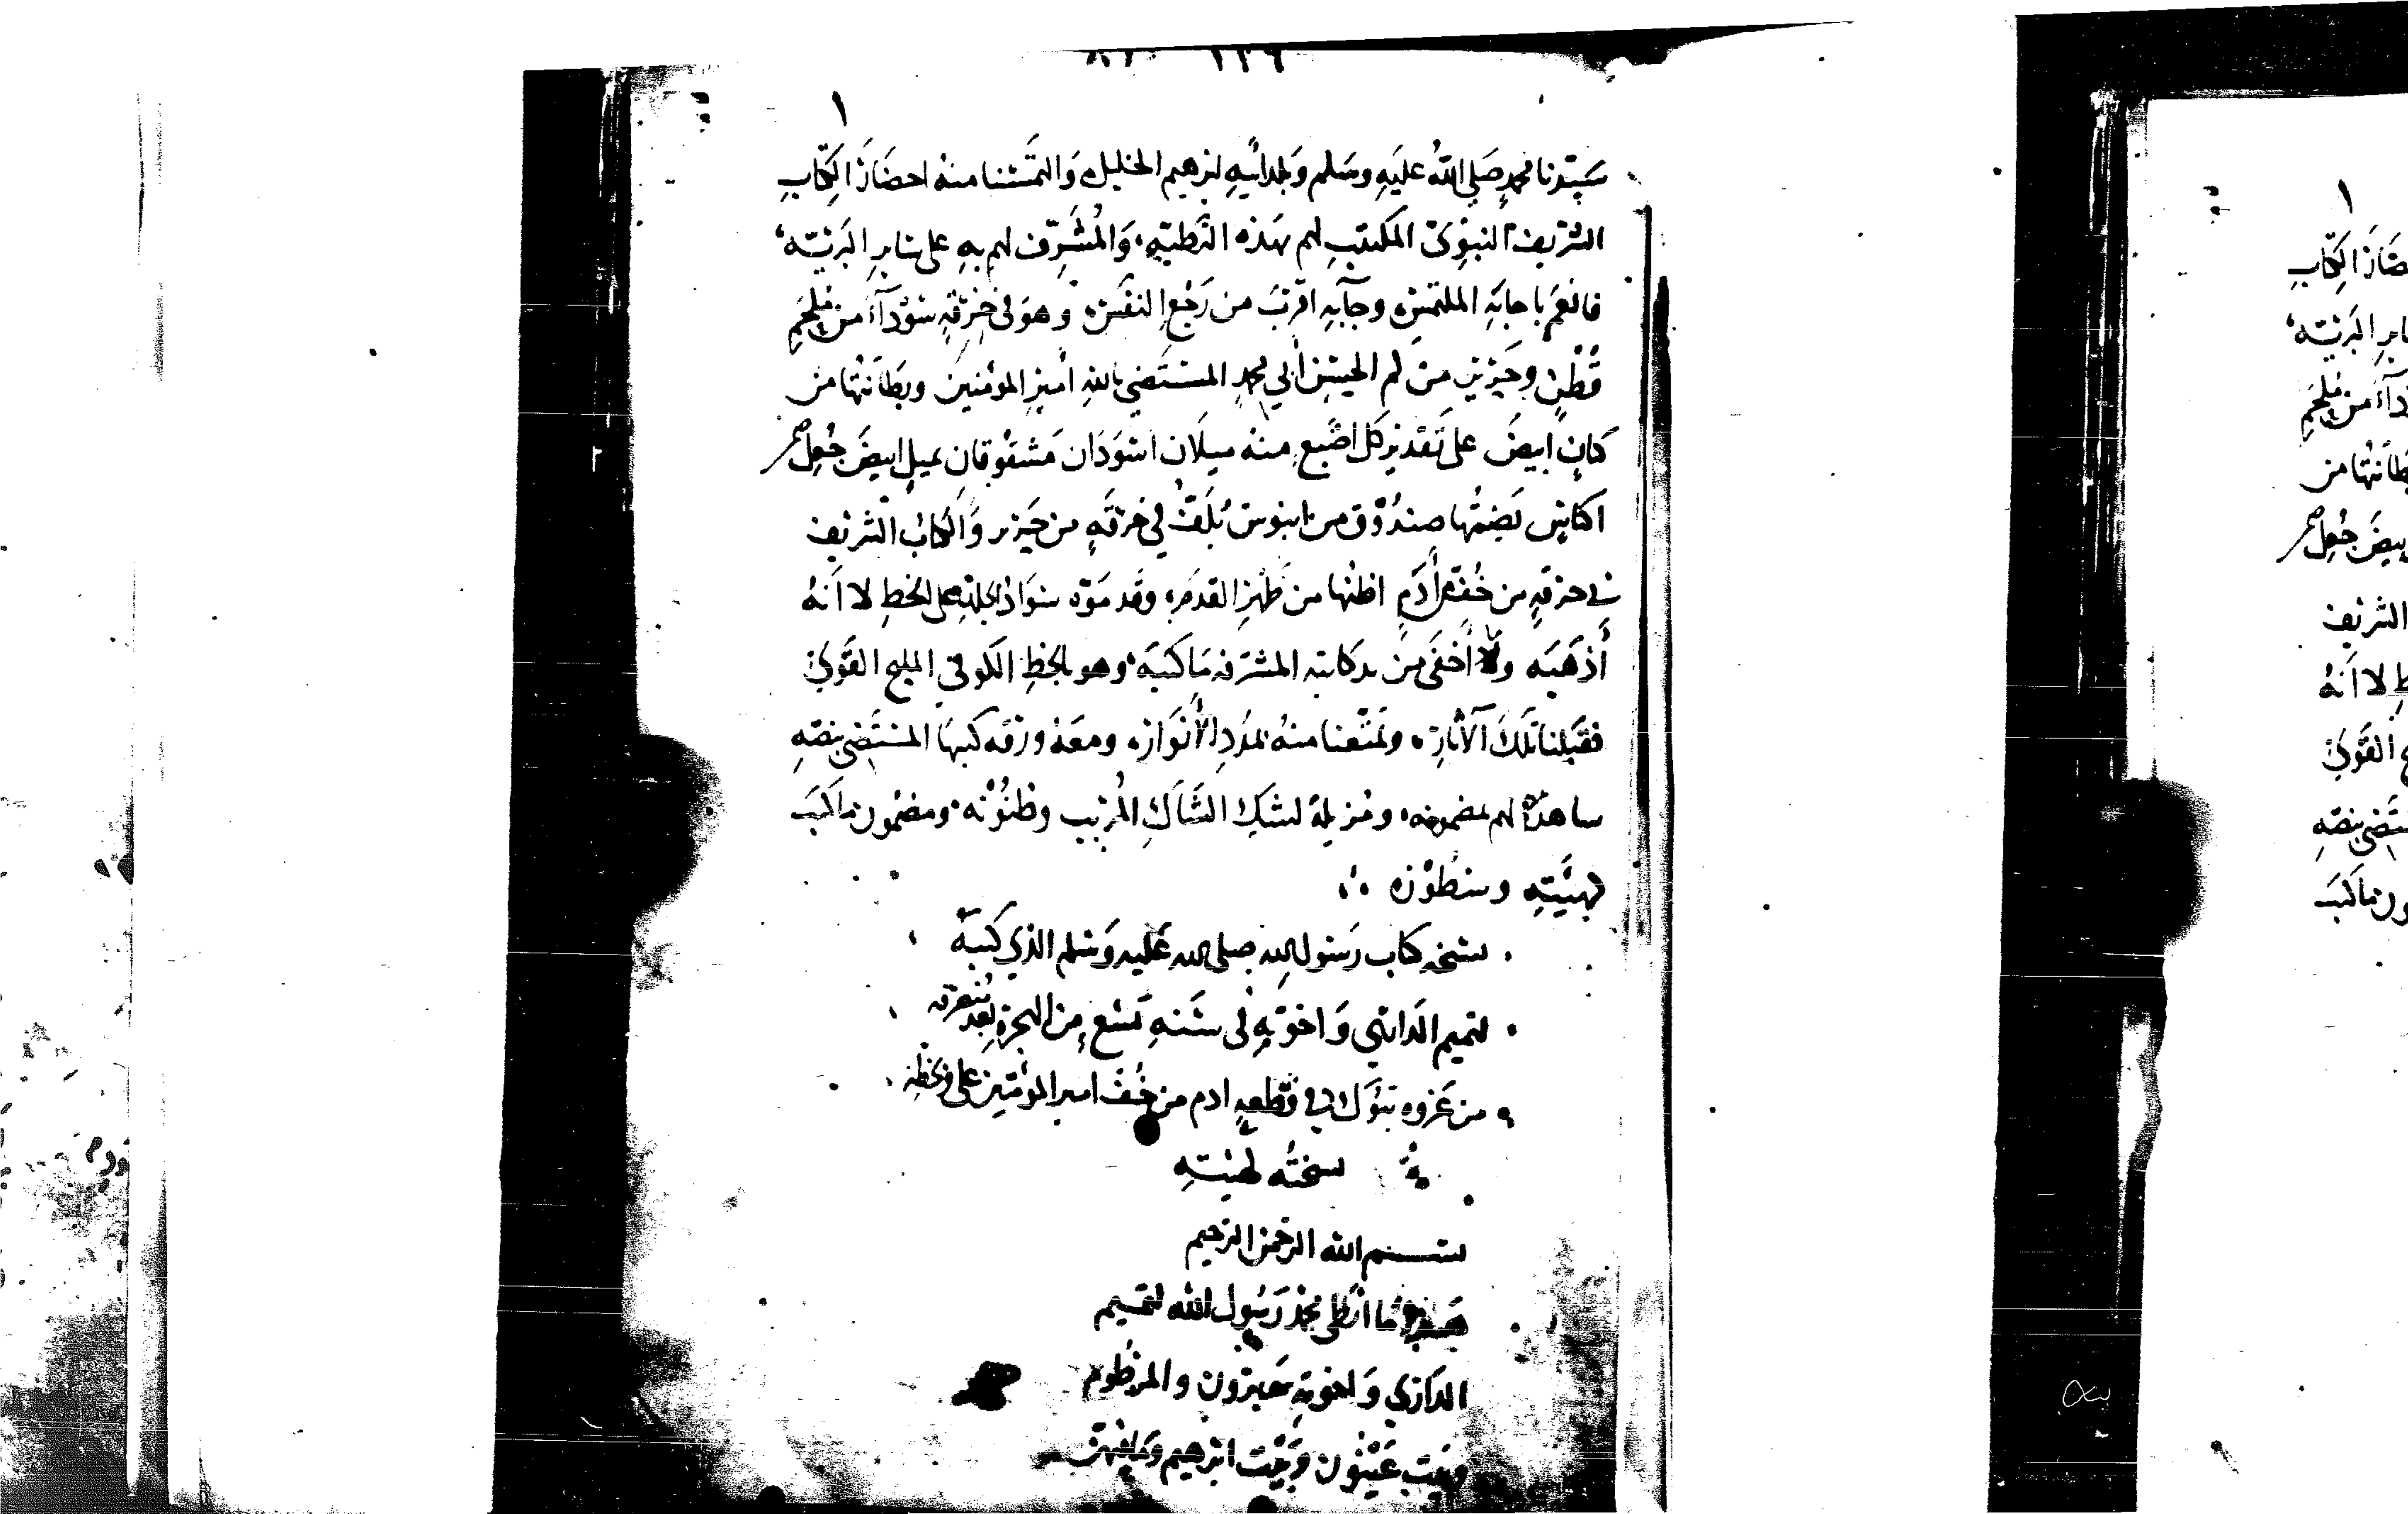 ١٣٦
١
سيدنا محمد صلى الله عليه وسلم وبلد ابيه ابرهيم الخليل والتمسنا منه احضار الكتاب
الشريف النبوى المكتتب لهم بهذه النطيه، والمشرف لهم به على ساير البريه،
فانعم باجابة الملتمس وجآء به اقرب من رجع النفس وهو فى خرقة سودآء من ملحم
قطن وحرير من كم الحسن أبي محمد المستضي بالله أمير المومنين وبطانتها من
كتان ابيض على تقدير كل اصبع منه ميلان اسودان مشقوقان بميل ابيض جعل
اكياس يضمها صندوق من ابنوس يلف في خرقة من حرير والكتاب الشريف
في خرقة من خف أدم اظنها من ظهر القدم، وقد موه سواد الجلد على الخط لا انه
أذهبه ولا أخفى من يد كاتبه المشرفه ما كتبه، وهو بالخط الكوفي المليح القوي
فقبلنا تلك الآثار، وتمتعنا منه بمدد الأنوار، ومعه ورقه كتبها المستضى بنصه
شاهدة لهم بمضمونه، ومزيلة لشك الشاك المريب وظنونه، ومضمون ما كتب
كهيئته وسطوره
نسخه كتاب رسول الله صلى الله عليه وسلم الذي كتبه
لتميم الداري واخوته فى سنة تسع من الهجرة بعد منصرفه
من غزوه تبوك في قطعة ادم من خف امير المومنين علي وبخطه
نسخته كهيئته
بسم الله الرحمن الرحيم
هذا ما انطى محمد رسول الله لتميم
الداري واخوته حبرون والمرطوم
وبيت عينون وبيت ابرهيم وما فيهن